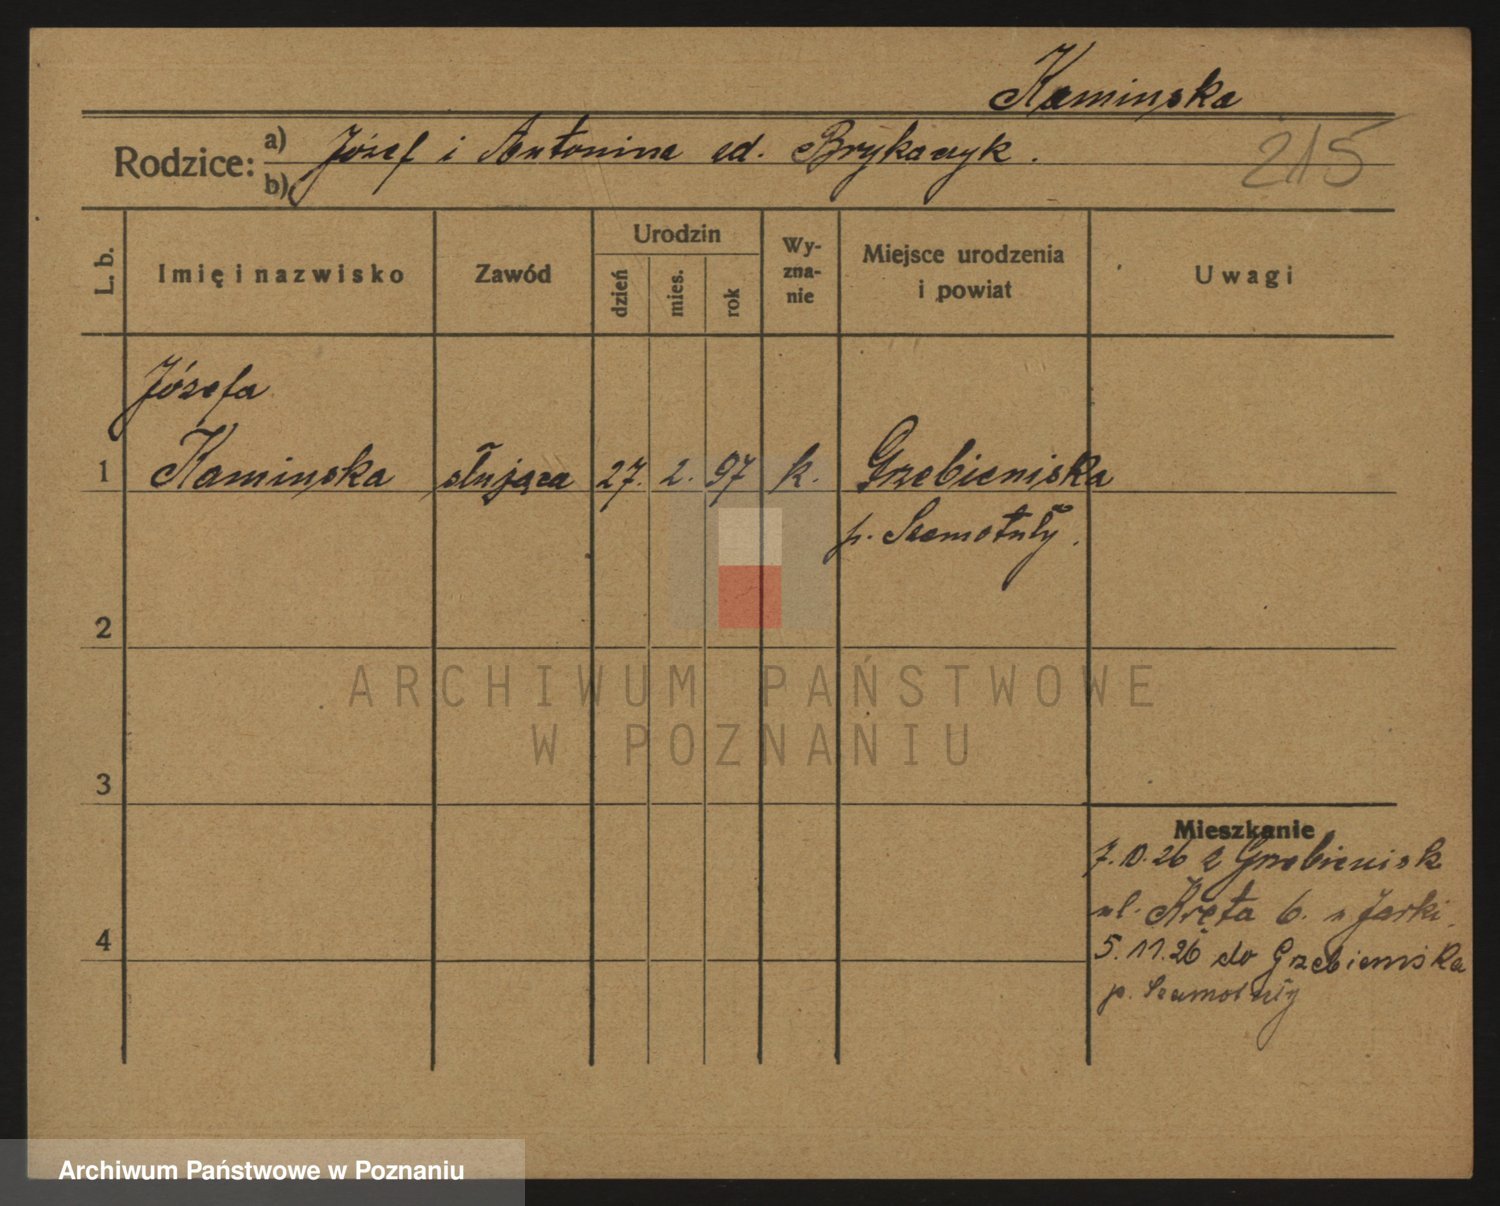 Kaminska
215
Rodzice: a) Józef i Antonina
b)
L. b.
Imię i nazwisko
Zawód
Urodzin
dzień
mies.
rok
Wy-
zna-
nie
Miejsce urodzenia
i powiat
Uwagi
Józefa
1 Kaminska służąca 27. 2. 97 k. Grzebieniska
p. Szamotuły.
2
3
4
Mieszkanie
7.10.26 z Grzebienisk
ul. Kręta 6.
5.11.26 do Grzebieniska
p. Szamotuły
ARCHIWUM PAŃSTWOWE
W POZNANIU
Archiwum Państwowe w Poznaniu